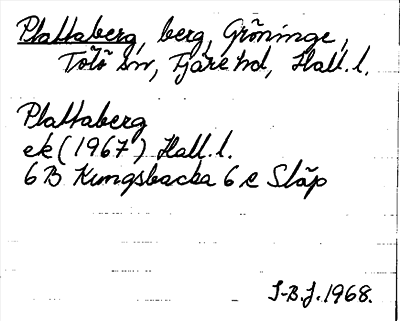 Plattaberg, berg, Gröninge,
Tölö sn, Fjäre hd, Hall. l.
Plattaberg
ek (1967) Hall. l.
6 B Kungsbacka 6 e Släp
I-B.J. 1968.